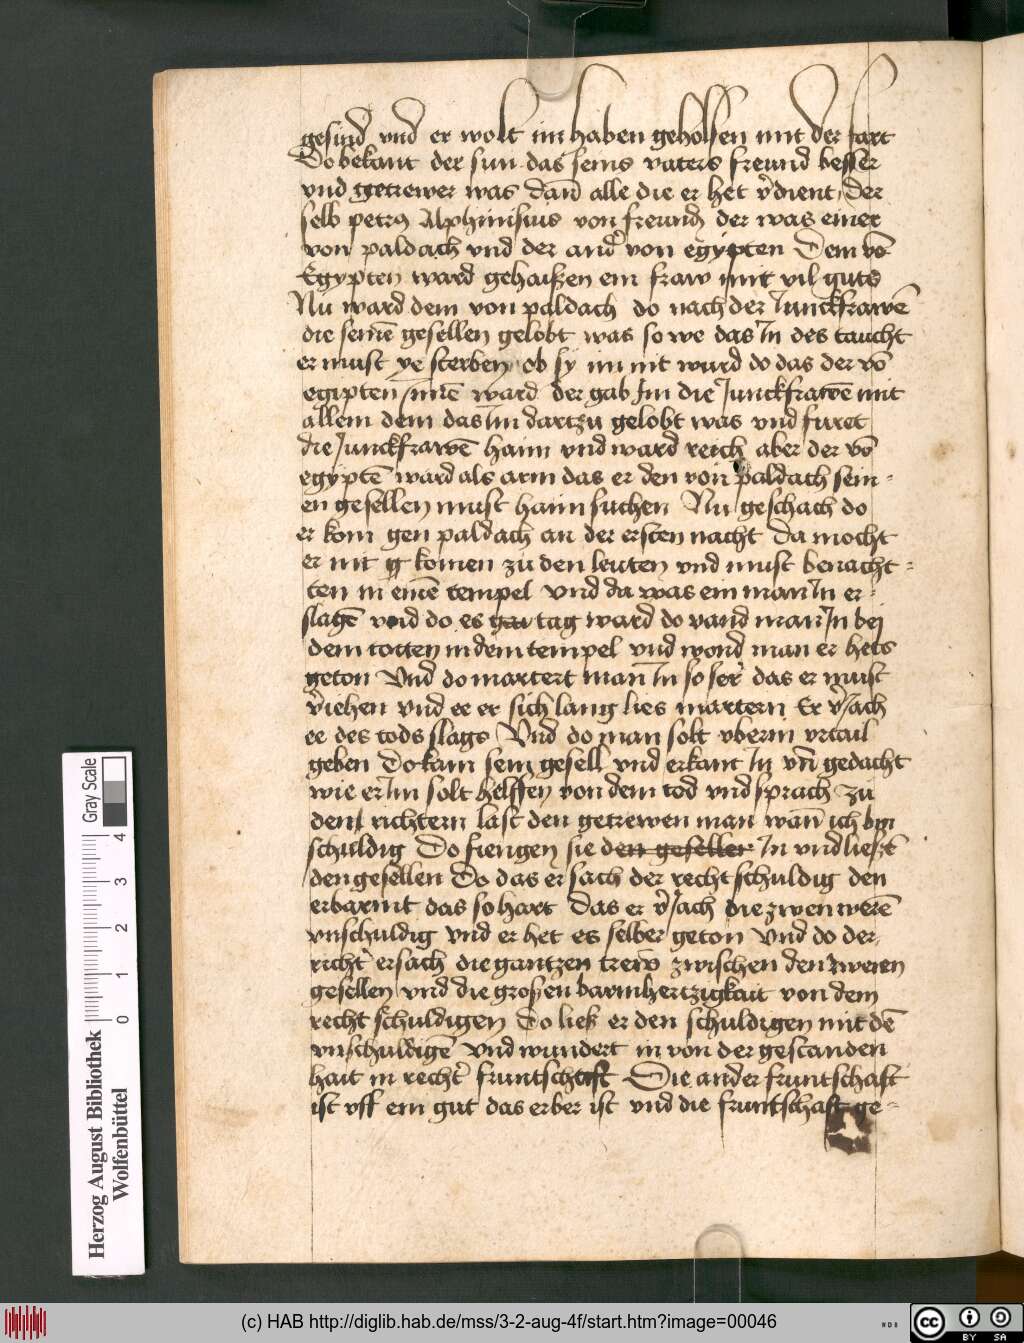 gesund vnd er wolt im haben geholffen mit der fart
Do bekant der sun das seins vaters freund besser
vnd getrewer was dan̄ alle die er het v̓dient / Der
selb petrꝯ Alphunsus von freund der was einer
von paldach vnd der and̓ von egypten Dem vō
Egypten ward gehaissen ein fraw mit vil guts
Nu ward dem von paldach do nach der Junckfrawē
die seinē gesellen gelobt was so we das In des taucht
er must ye sterben ob sy im nit wurd do das der vō
egipten Innē ward der gab Im die Junckfrawē mit
allem dem das Im dartzu gelobt was vnd furet
die Junckfrawē haim vnd ward reich aber der vō
egyptē ward als arm das er den von paldach sein-
en gesellen must haim suchen Nu geschach do
er kom gen paldach an der ersten nacht Da mocht
er nit g komen zu den leuten vnd must benacht-
ten in einē tempel vnd da was ein man In er-
slagē vnd do es gar tag ward do vand man In bej
dem totten in dem tempel vnd wond man er hets
geton Vnd do martert man In so ser̓ das er must
v̓iehen vnd ee er sich lang lies martern Er v̓Jach
ee des tods slags Vnd do man solt vberin vrtail
geben Do kam sein gesell vnd erkant In vn̄ gedacht
wie er Im solt helffen von dem tod vnd sprach zu
den richtern last den getrewen man wan̄ ich bin
schuldig Do fiengen sie den gesellen In vnd liessē
den gesellen Do das er sach der recht schuldig den
erbarmt das so hart Das er v̓Jach die zwen werē
vnschuldig vnd er het es selber geton Vnd do der
richt̓ ersach die gantzen trew zwischen den zweien
gesellen vnd die grossen barmhertzigkait von dem
recht schuldigen Do lies er den schuldigen mit dē
vnschuldigē Vnd wundert in von der gestanden
hait in recht̓ fruntschaft Die ander fruntschaft
ist vff ein gut das erber ist vnd die fruntschaft ge-
Herzog August Bibliothek
Wolfenbüttel
0 1 2 3 4
Gray Scale
(c) HAB http://diglib.hab.de/mss/3-2-aug-4f/start.htm?image=00046
WDB
CC BY SA